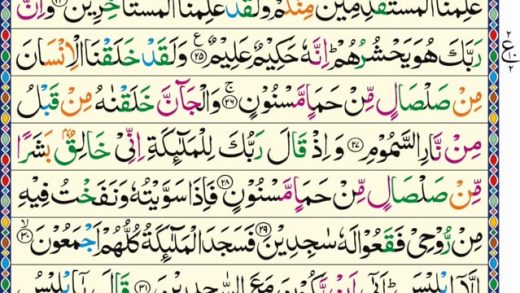 عَلِمْنَا الْمُسْتَقْدِمِيْنَ مِنْكُمْ وَلَقَدْ عَلِمْنَا الْمُسْتَاْخِرِيْنَ ﴿۲۴﴾ وَاِنَّ
رَبَّكَ هُوَ يَحْشُرُهُمْ ؕ اِنَّهٗ حَكِيْمٌ عَلِيْمٌ ﴿۲۵﴾ وَلَقَدْ خَلَقْنَا الْاِنْسَانَ
مِنْ صَلْصَالٍ مِّنْ حَمَاٍ مَّسْنُوْنٍ ﴿۲۶﴾ وَالْجَآنَّ خَلَقْنٰهُ مِنْ قَبْلُ
مِنْ نَّارِ السَّمُوْمِ ﴿۲۷﴾ وَاِذْ قَالَ رَبُّكَ لِلْمَلٰٓئِكَةِ اِنِّىْ خَالِقٌۢ بَشَرًا
مِّنْ صَلْصَالٍ مِّنْ حَمَاٍ مَّسْنُوْنٍ ﴿۲۸﴾ فَاِذَا سَوَّيْتُهٗ وَنَفَخْتُ فِيْهِ
مِنْ رُّوْحِىْ فَقَعُوْا لَهٗ سٰجِدِيْنَ ﴿۲۹﴾ فَسَجَدَ الْمَلٰٓئِكَةُ كُلُّهُمْ اَجْمَعُوْنَ ﴿۳۰﴾
اِلَّاۤ اِبْلِيْسَ ؕ اَبٰٓى اَنْ يَّكُوْنَ مَعَ السّٰجِدِيْنَ ﴿۳۱﴾ قَالَ يٰۤاِبْلِيْسُ